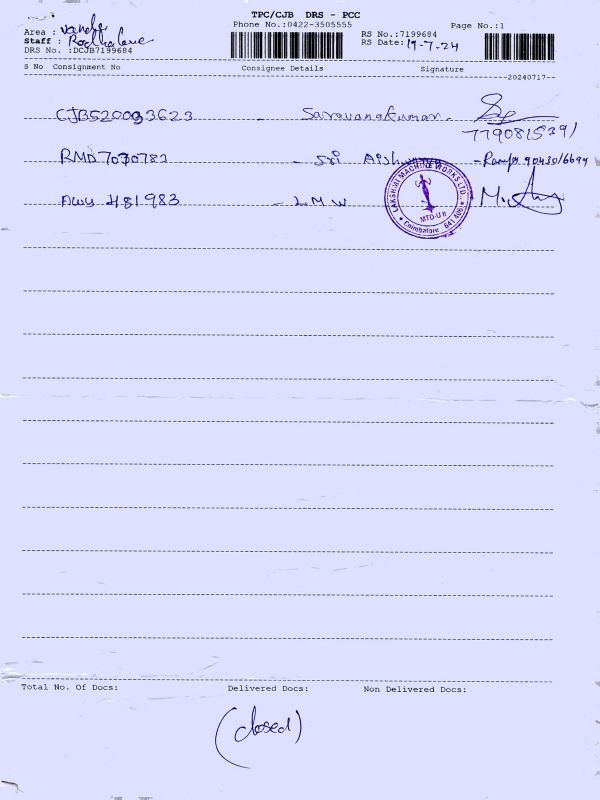 TPC/CJB DRS - PCC
Phone No.:0422-3505555
Page No.:1
Area :
Staff :
RS No.:7199684
RS Date: 19-7-24
DRS No. :DCJB7199684
S No Consignment No Consignee Details Signature
20240717
CJB520093623 - Saravanakumar.
7790815391
RMD7030783 - Sri Aishwarya
481983 - L M W
LAKSHMI MACHINE WORKS LTD.,
MTD-U II
Coimbatore
Total No. Of Docs: Delivered Docs: Non Delivered Docs:
(closed)